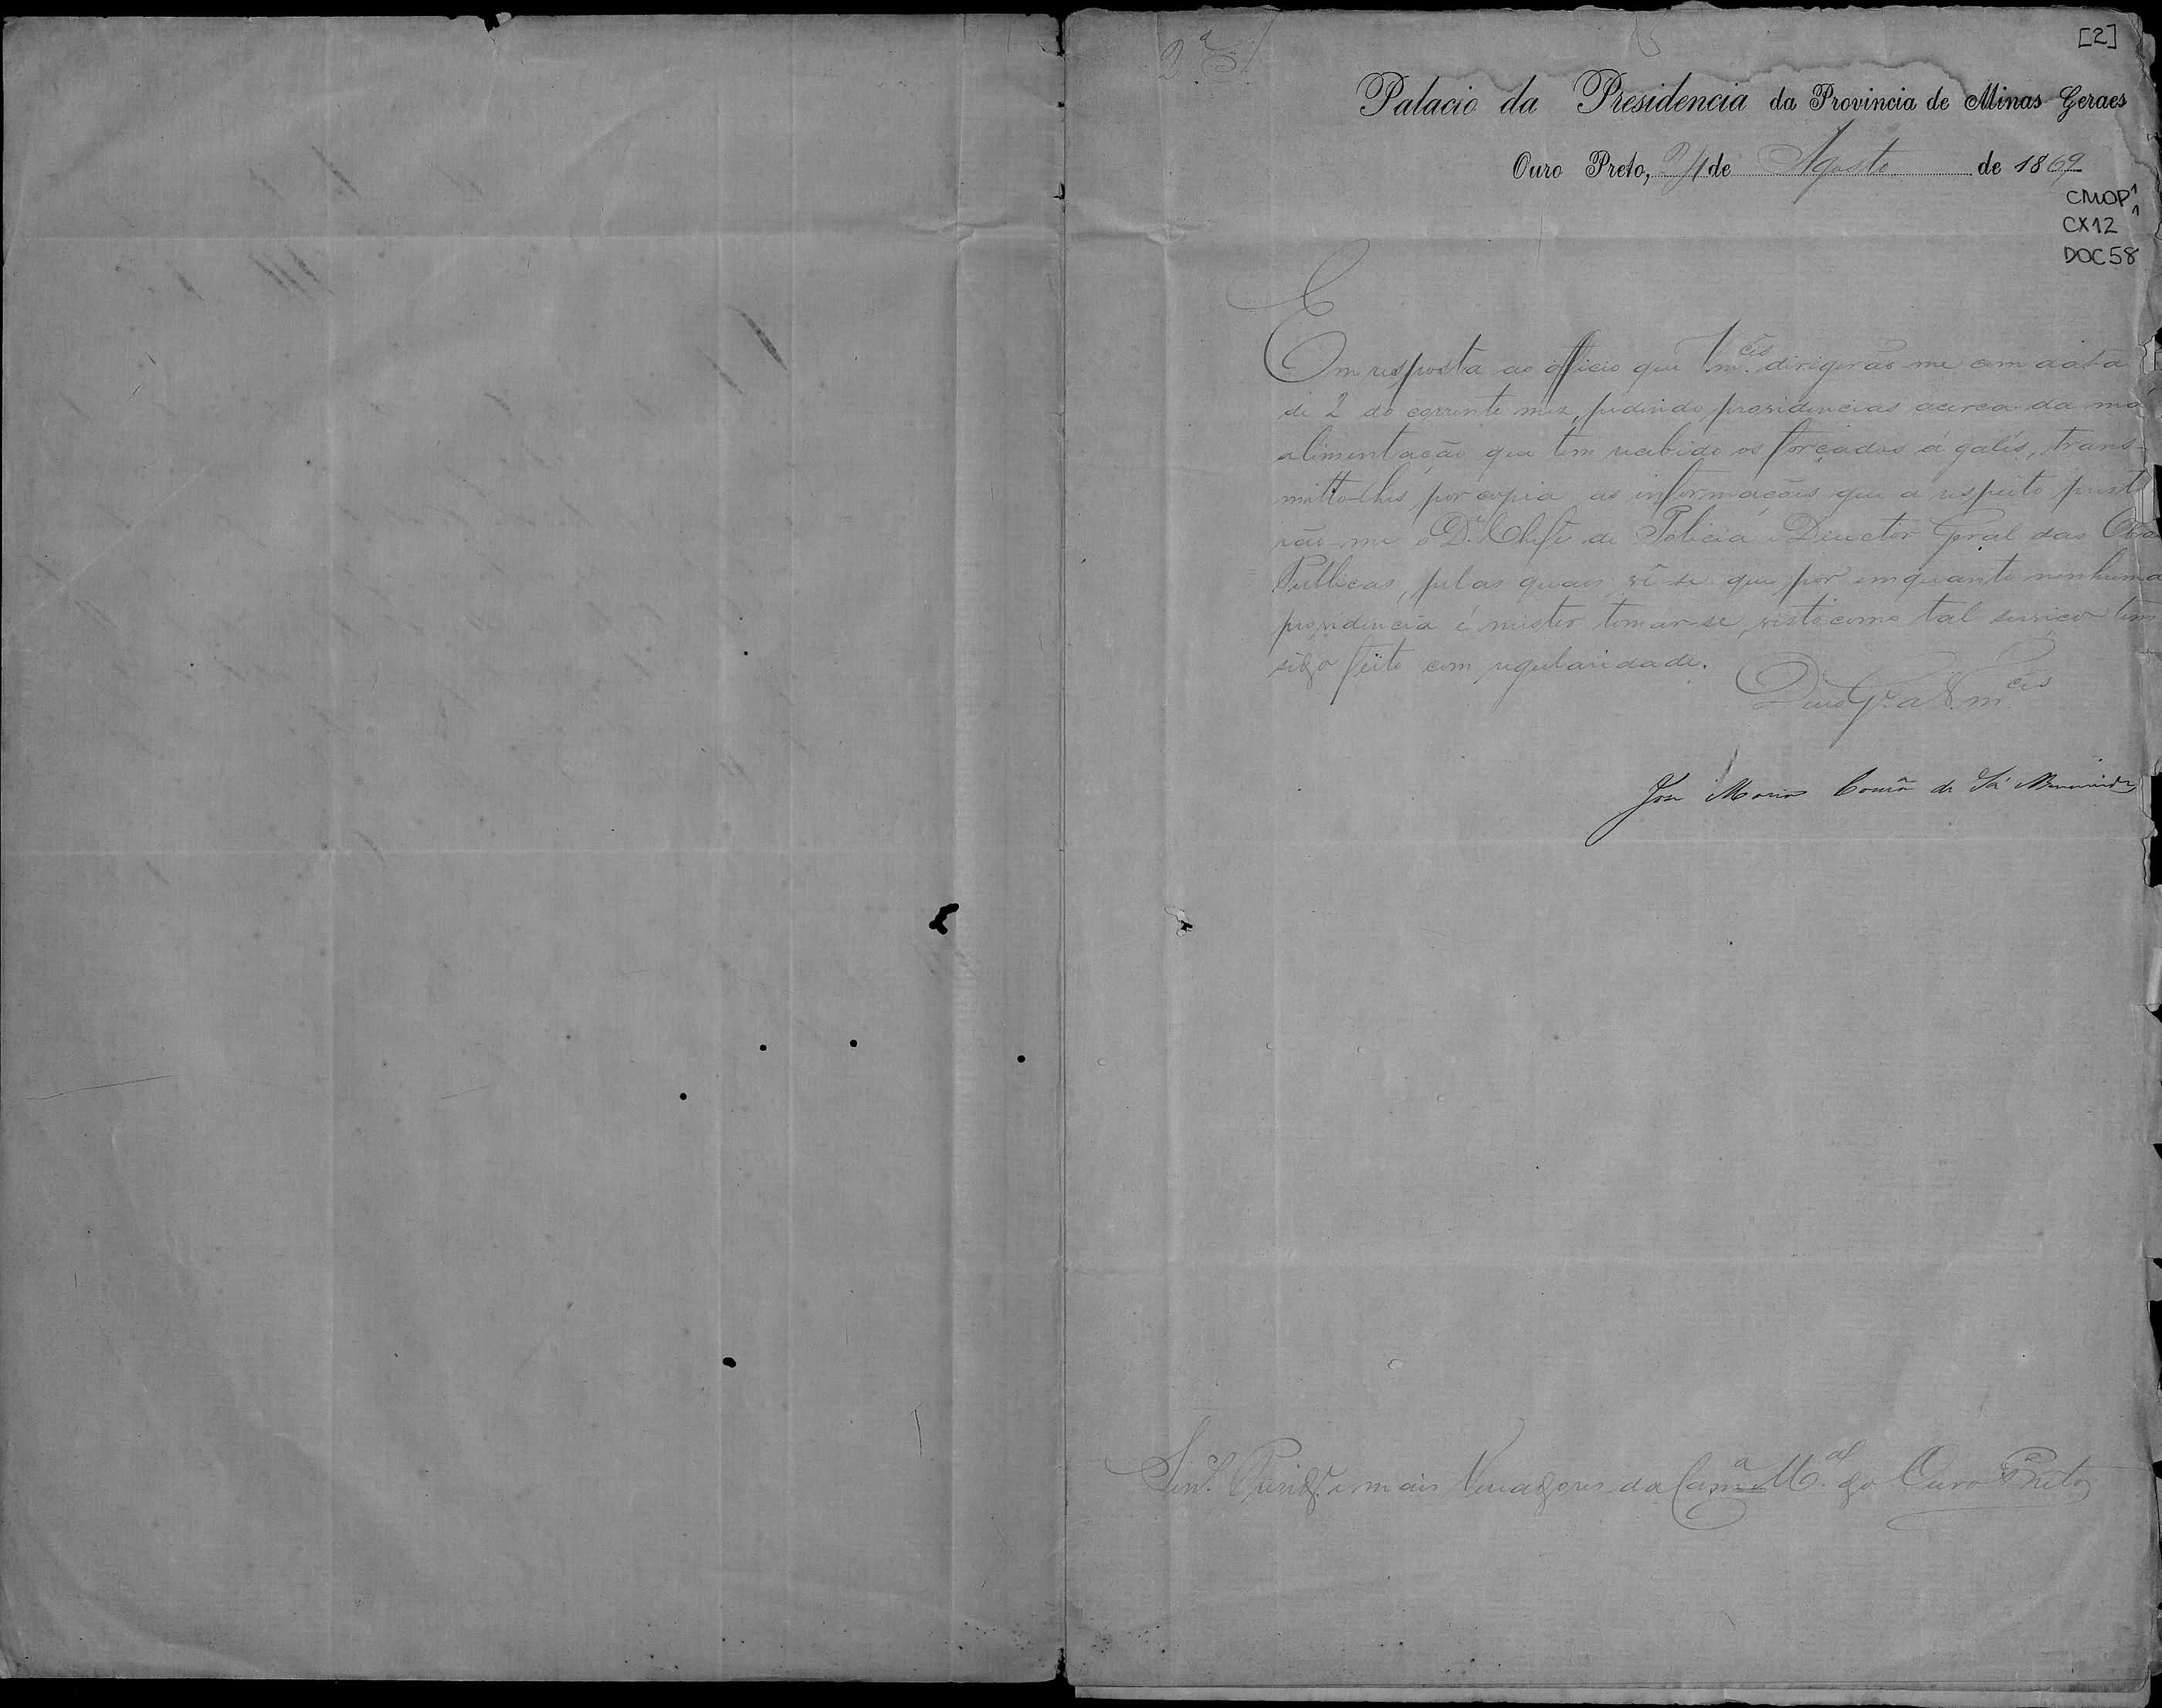 [2]
2ª S
Palacio da Presidencia da Provincia de Minas Geraes
Ouro Preto, 24 de Agosto de 1869
CMOP 1 1
CX12
DOC 58
Em resposta ao officio que Vm.ces dirigirão-me com data
de 2 do corrente mez, pedindo providencias acerca da má
alimentação que tem recebido os forçados á galés, trans-
mitto-lhes por copia as informações que a respeito prest
rão-me o Dr. Chefe de Policia e Director Geral das Obras
Publicas, pelas quaes vê-se que por emquanto nenhuma
providencia é mister tomar-se, visto como tal serviço tem
sido feito com regularidade.
Deus G.e a V.mces
José Maria Corrêa de Sá Benevides
Senr. Presid.e e mais Vereadores da Camª M.al do Ouro Preto